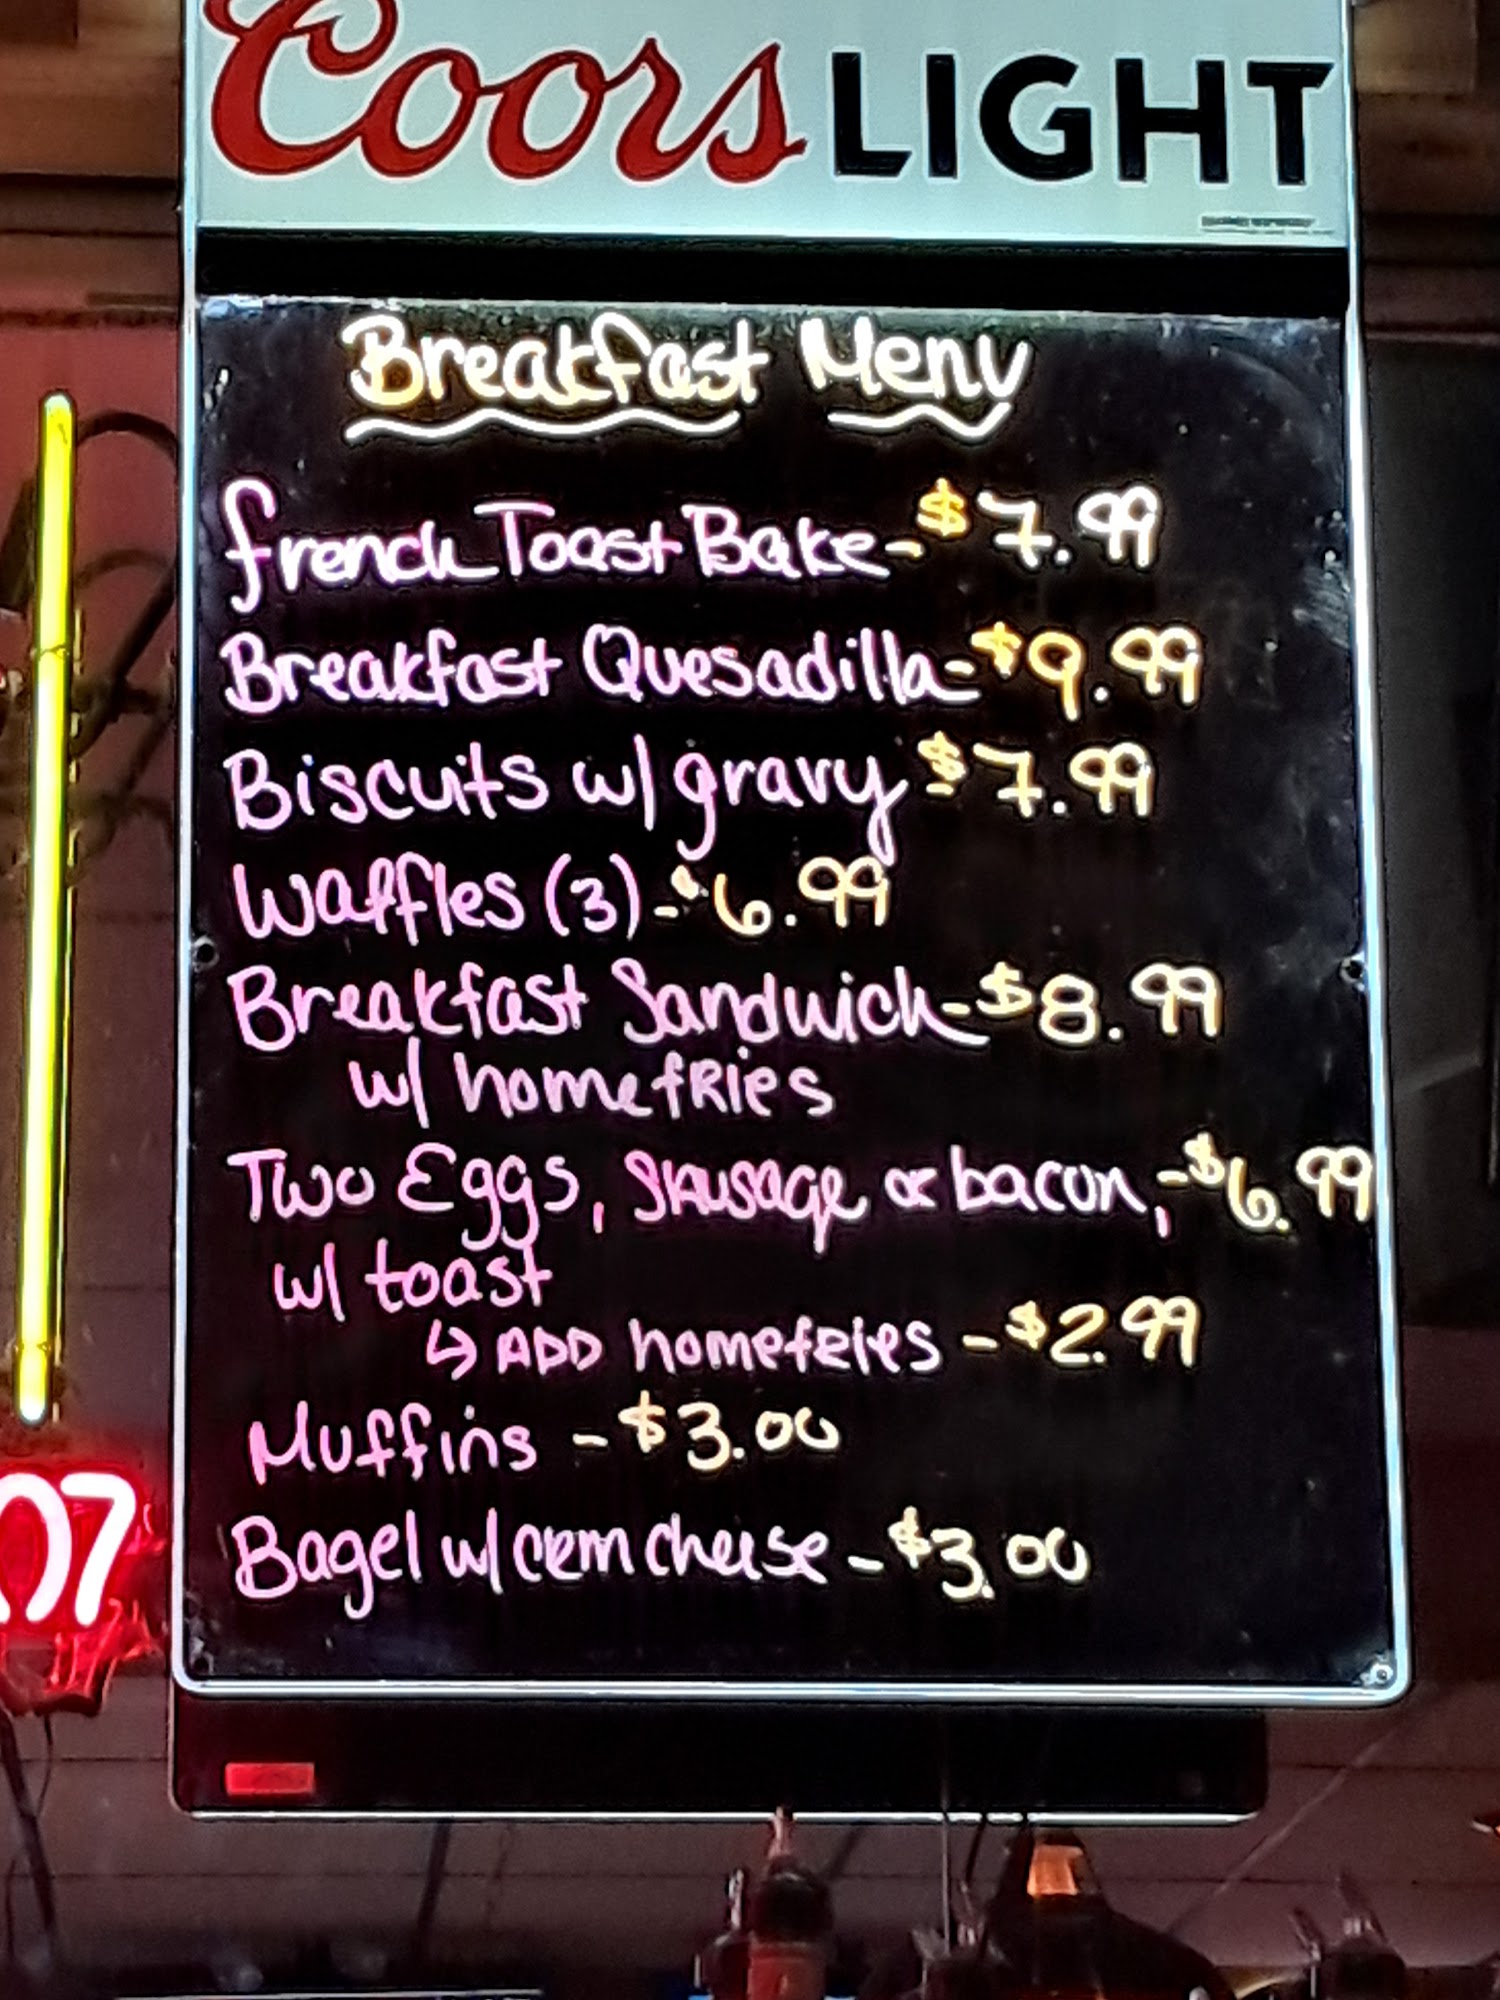 Coors LIGHT
Breakfast Menu
french Toast Bake - $7.99
Breakfast Quesadilla - $9.99
Biscuits w/ gravy $7.99
Waffles (3) - $6.99
Breakfast Sandwich - $8.99
w/ homefRies
Two Eggs, SAusage or bacon, - $6.99
w/ toast
↳ ADD homefRies - $2.99
Muffins - $3.00
Bagel w/ crem cheese - $3.00
07